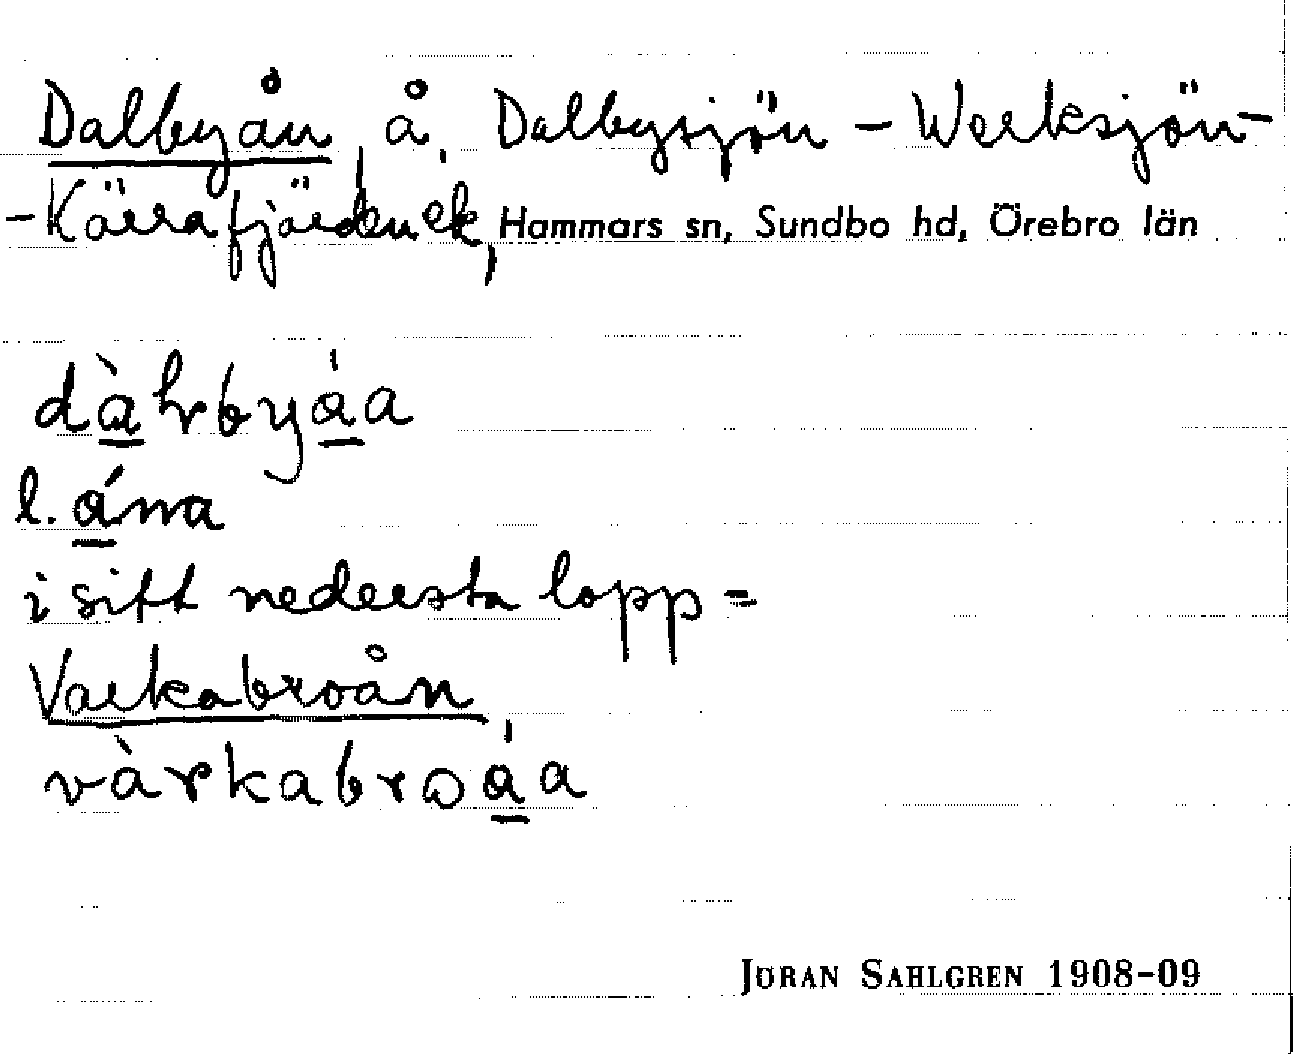 Dalbyån, å, Dalbysjön – Werksjön –
– Kärrafjärden ek, Hammars sn, Sundbo hd, Örebro län
dàhrbyáa
l. ána
i sitt nedersta lopp =
Varkabroån
vàrkabroáa
JÖRAN SAHLGREN 1908-09